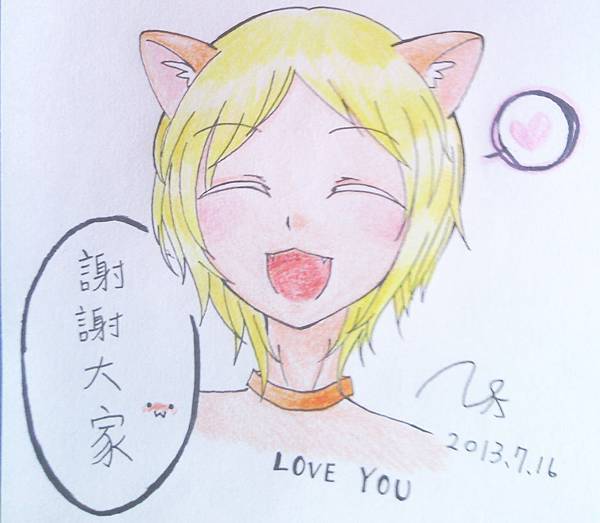 謝謝大家
LOVE YOU
2013.7.16